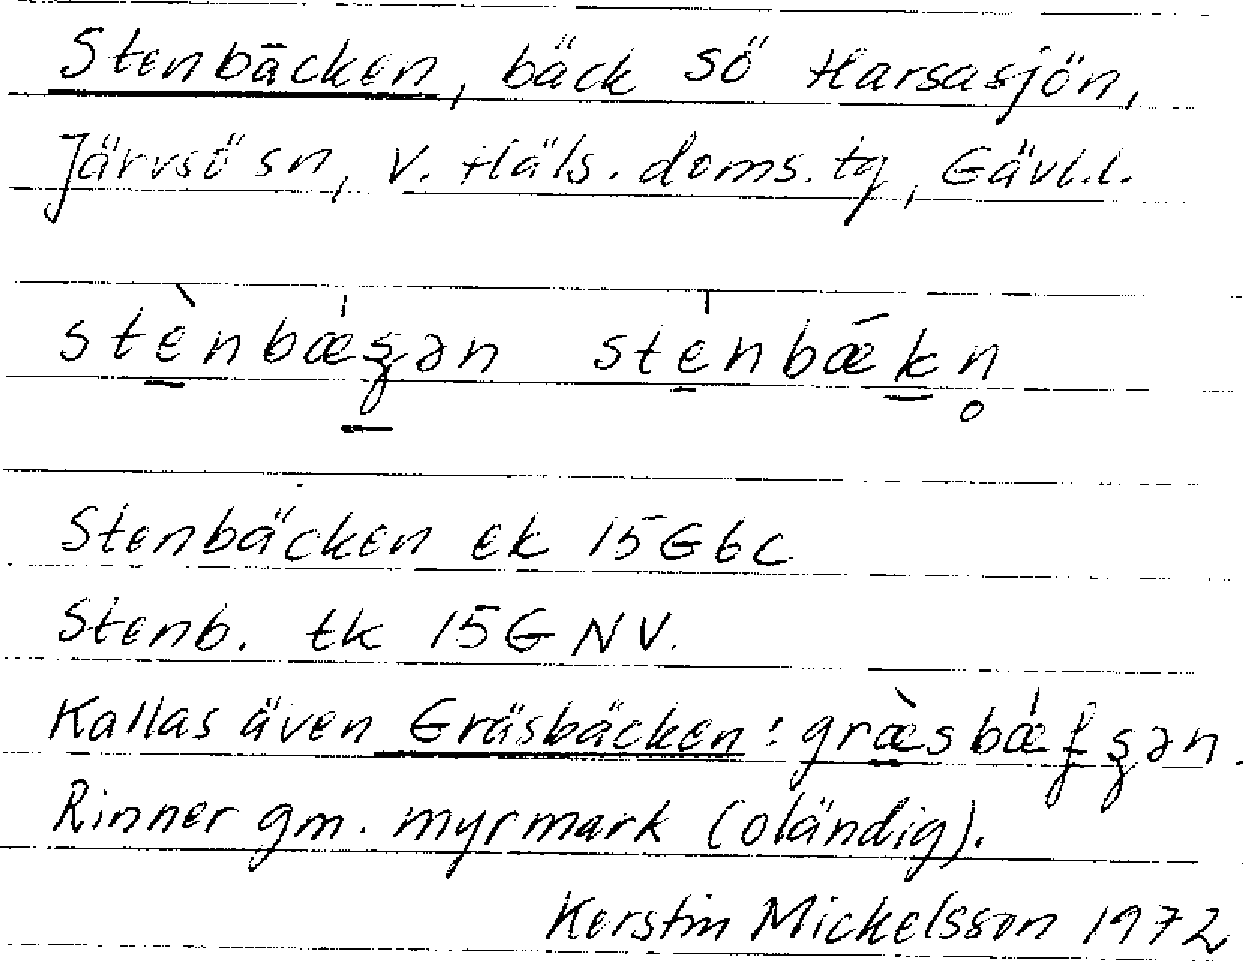 Stenbäcken, bäck SÖ Harsasjön,
Järvsö sn, V. Häls. doms. tg, Gävl.l.
stènbǽʂən sténbǽkn̥
Stenbäcken ek 15G6c
Stenb. tk 15G NV.
Kallas även Gräsbäcken: græ̀sbǽʂən.
Rinner gm. myrmark (oländig).
Kerstin Mickelsson 1972